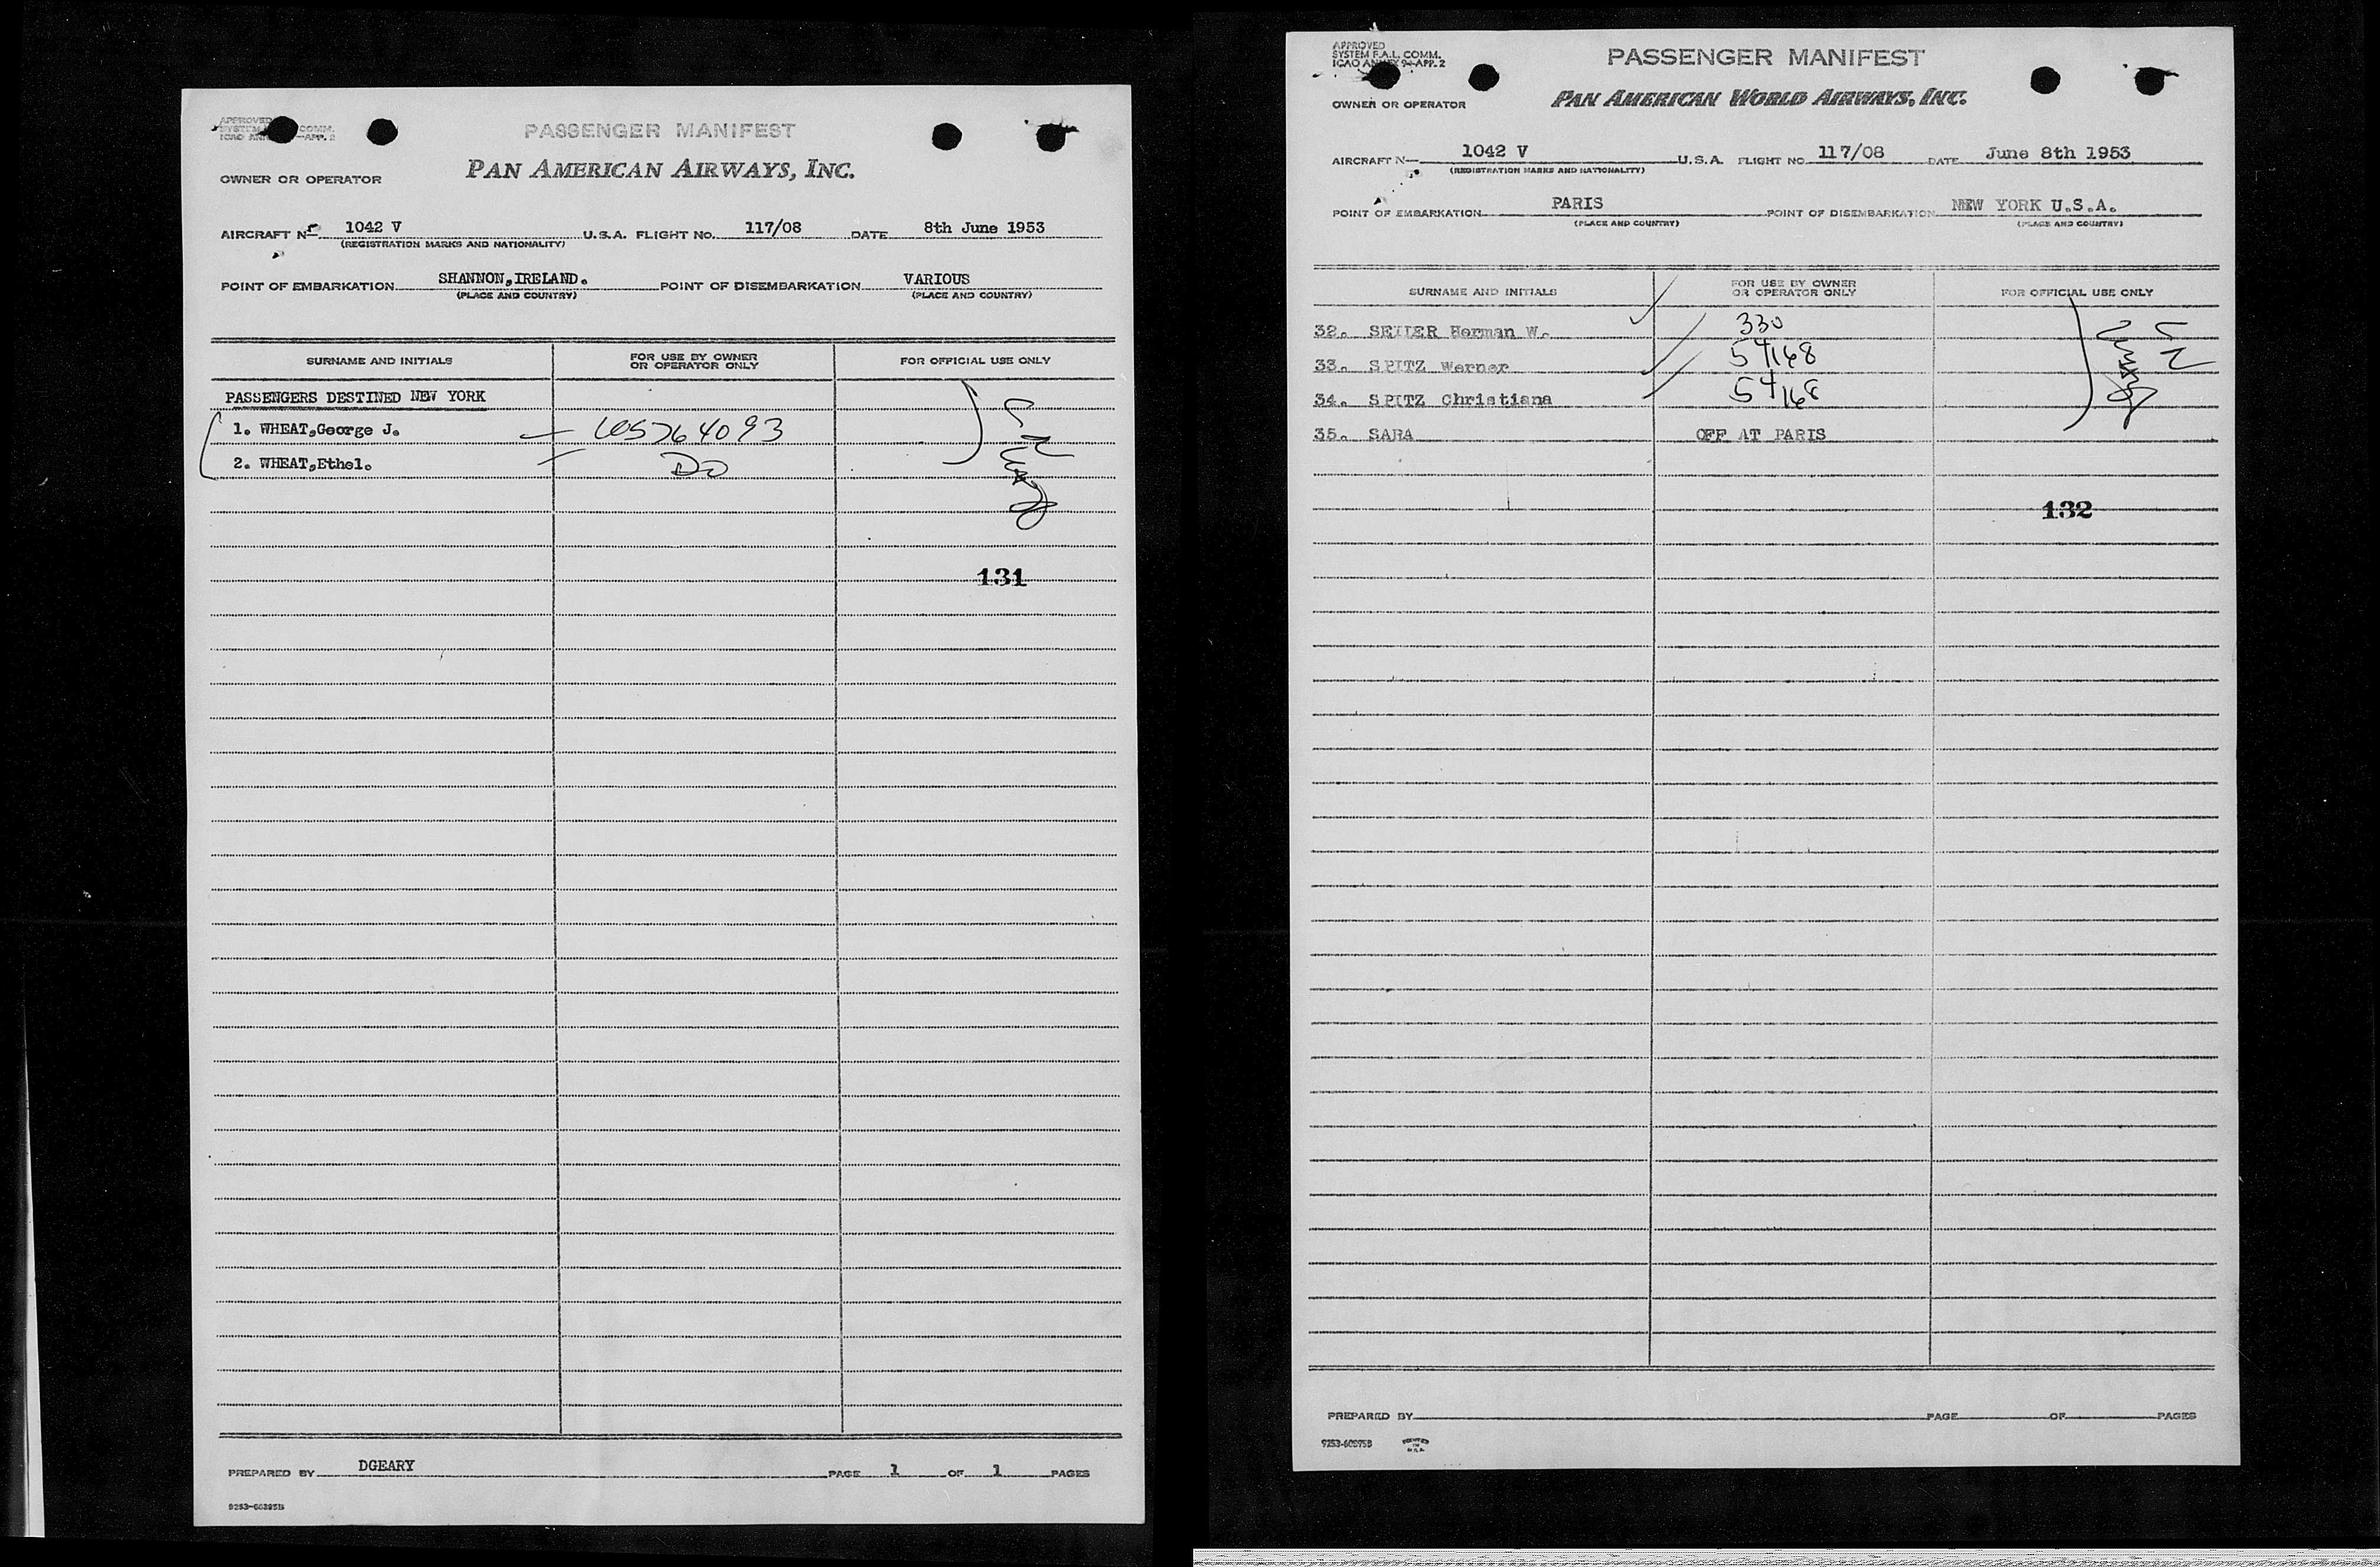 APPROVED
COMM.
PASSENGER MANIFEST
PAN AMERICAN AIRWAYS, INC.
OWNER OR OPERATOR
AIRCRAFT N 1042 V U.S.A. FLIGHT NO. 117/08 DATE 8th June 1953
(REGISTRATION MARKS AND NATIONALITY)
POINT OF EMBARKATION SHANNON,IRELAND. POINT OF DISEMBARKATION VARIOUS
(PLACE AND COUNTRY) (PLACE AND COUNTRY)
SURNAME AND INITIALS FOR USE BY OWNER OR OPERATOR ONLY FOR OFFICIAL USE ONLY
PASSENGERS DESTINED NEW YORK
1. WHEAT,George J. 
2. WHEAT,Ethel. Do
131
PREPARED BY DGEARY PAGE 1 OF 1 PAGES
APPROVED
SYSTEM F.A.L. COMM.
ICAO ANNEX 9-APP. 2
PASSENGER MANIFEST
OWNER OR OPERATOR PAN AMERICAN WORLD AIRWAYS, INC.
AIRCRAFT N 1042 V U.S.A. FLIGHT NO. 117/08 DATE June 8th 1953
(REGISTRATION MARKS AND NATIONALITY)
POINT OF EMBARKATION PARIS POINT OF DISEMBARKATION NEW YORK U.S.A.
(PLACE AND COUNTRY) (PLACE AND COUNTRY)
SURNAME AND INITIALS FOR USE BY OWNER OR OPERATOR ONLY FOR OFFICIAL USE ONLY
32. SEILER Herman W. 330
33. SPITZ Werner 54168
34. SPITZ Christiana 54168
35. SABA OFF AT PARIS
132
PREPARED BY PAGE OF PAGES
PRINTED IN U.S.A.